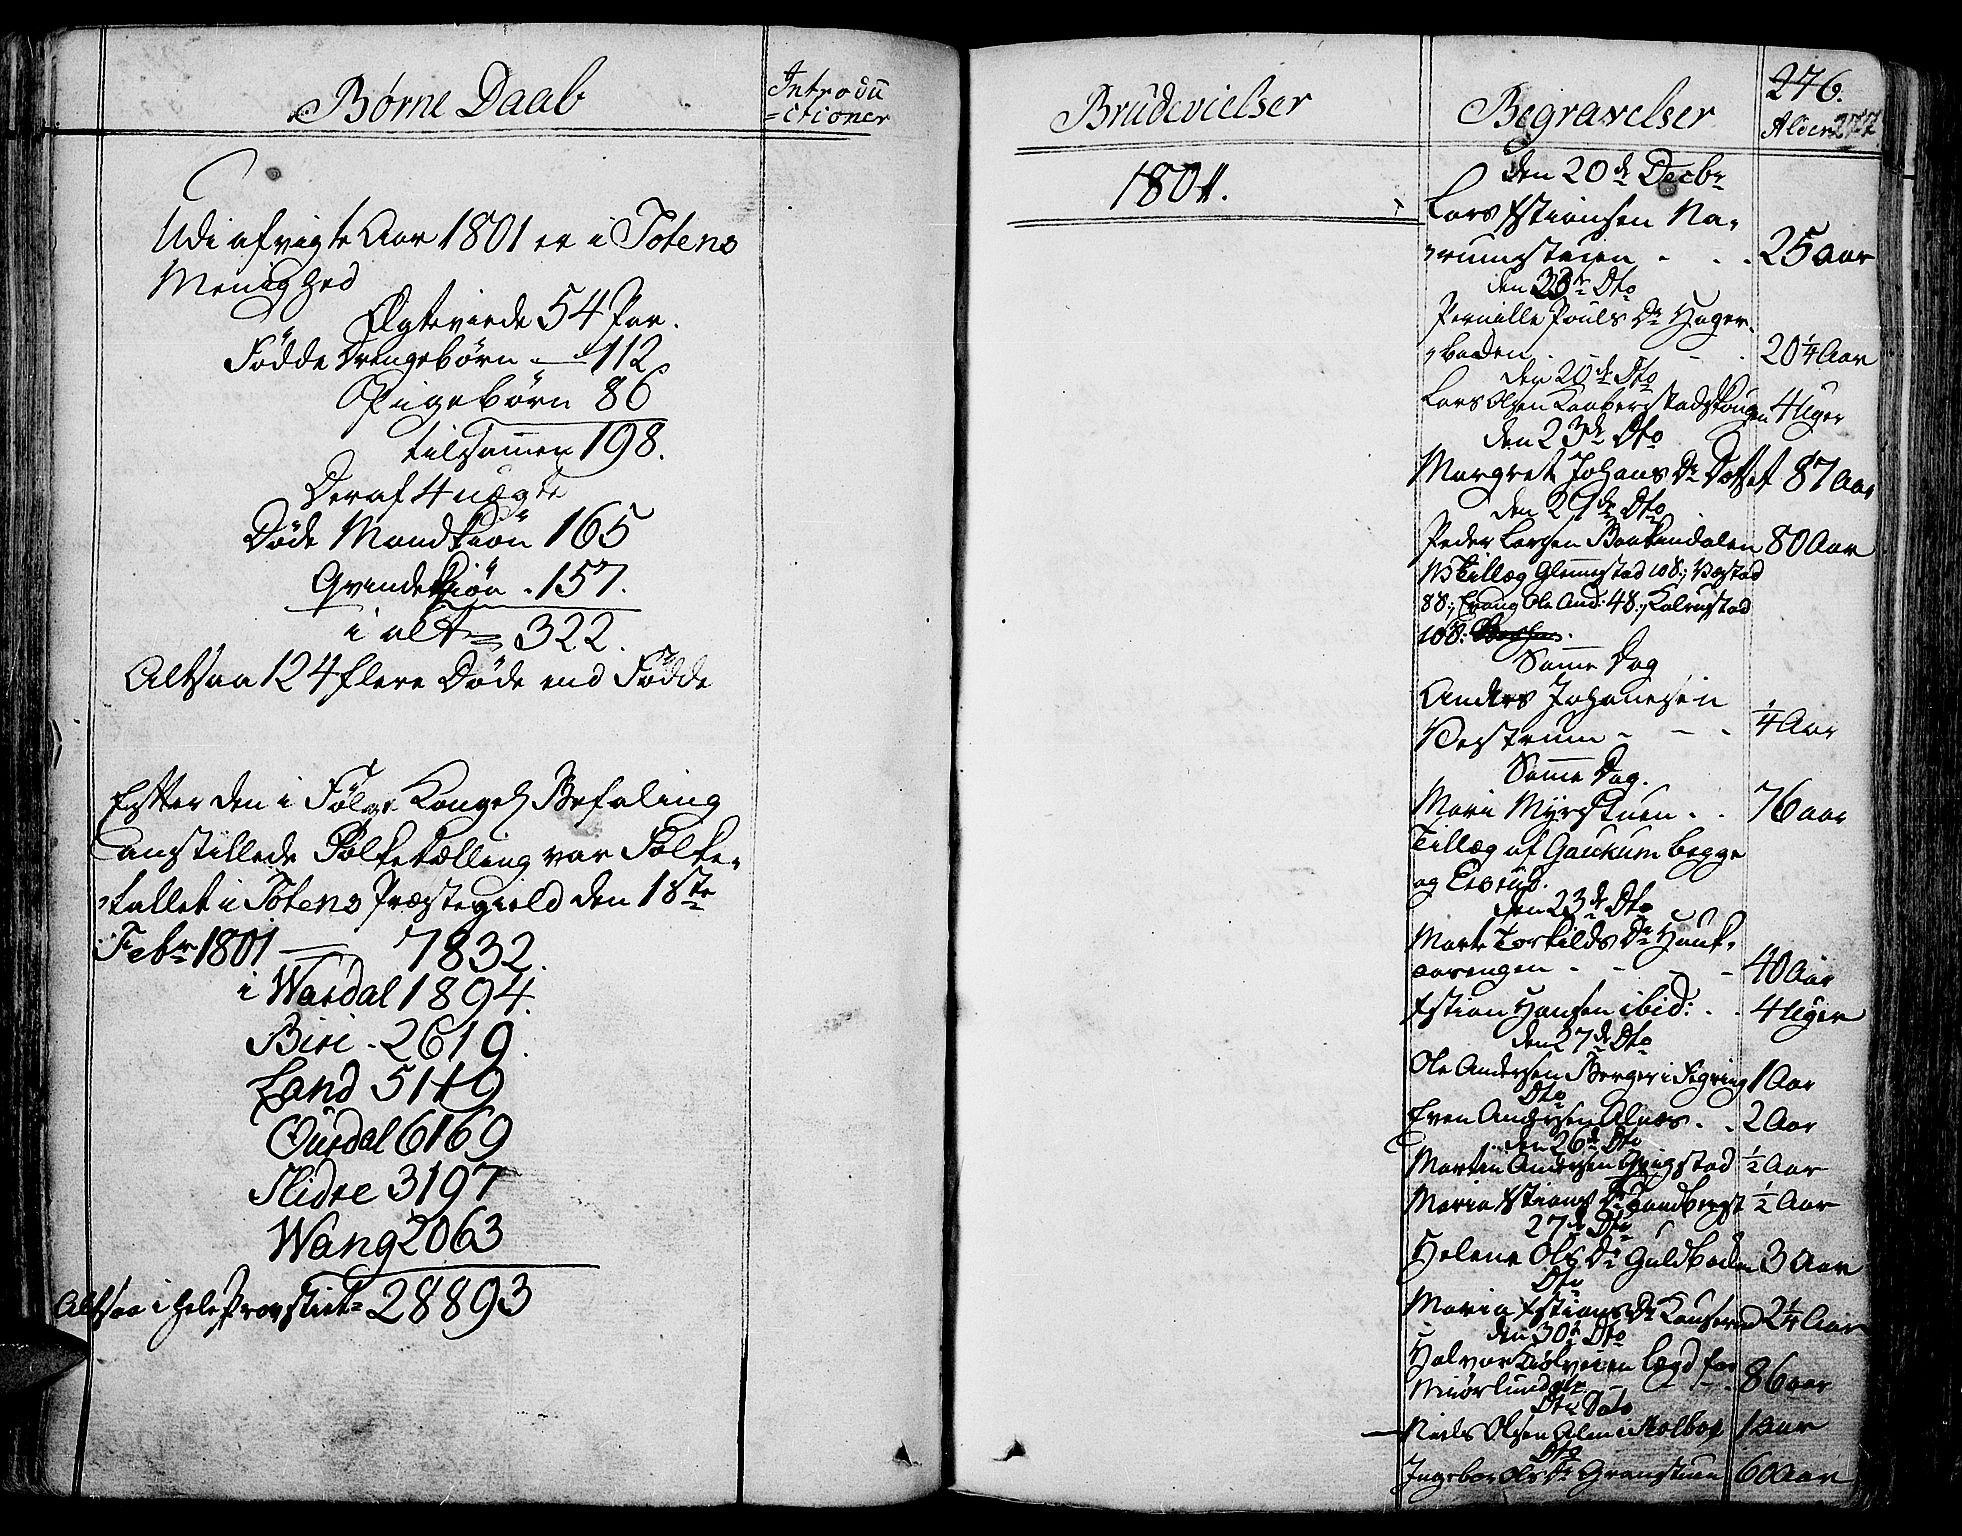 Børne Daab
Introdu
=ctioner
Udi afvigte Aar 1801 er i Totens
Menighed
Ægteviede 54 Par.
Födde Drengebörn — 112
Pigebörn 86
tilsamen 198.
Deraf 4 uægte
Døde Mandkiön 165
Qvindekiön . 157.
i alt = 322.
Altsaa 124 flere Døde end Fødde
Efter den i Følge Kongel Befaling
anstillede Folketælling var Folke-
tallet i Totens Præstegield den 1ste
Febr 1801 — 7832.
i Wardal 1894.
Biri . 2619.
Land 5119
Ourdal 6169
Slidre 3197
Wang 2063
Altsaa i hele Provstiet = 28893
Brudevielser
1801.
Begravelser
276.
Alder 277
den 20de Decbr
Lars Estiansen Na-
rumsteien - - . 25 aar
den 23de Dto
Pernille Pouls Dr Hager-
baden . - - . 20 1/4 Aar
den 20de Dto
Lars Olsen Kaaberstadskougen 4 Uger
den 23de Dto
Margret Johans Dr 87 Aar
den 29de Dto
Peder Larsen Baakendalen 80 Aar
Tillæg Glemmestad 108; Vestad
88; Evang Ole And: 48; Kalrustad
108:
Same Dag
Anders Johanesen
Vestrum - - . 1/4 Aar
Same Dag.
Mari Myrstuen . . 76 aar
Tillæg af Gaukum begge
og
den 23de Dto
Marte Torkilds Dr Hauk-
aasengen - - - 40 Aar
Estian Hansen ibid: . . 4 Uger
den 27de Dto
Ole Andersen Berger i 1 Aar
Dto
Even Andersen Alnæs . . 2 Aar
den 26de Dto
Morten Andersen Qvigstad 1/2 Aar
Maria Estians Dr Sandberget 1/2 Aar
27de Dto
Helene Ols Dr Guldboden 3 Aar
Dto
Maria Estians Dr 2 1/4 Aar
den 30te Dto
Halvor Kiølveien lægd for
- 86 aar
Dto Dato
Niels Olsen Alm i Kolboe 1 Aar
Dto
Ingebor Ols Dr Granstuen 60 Aar